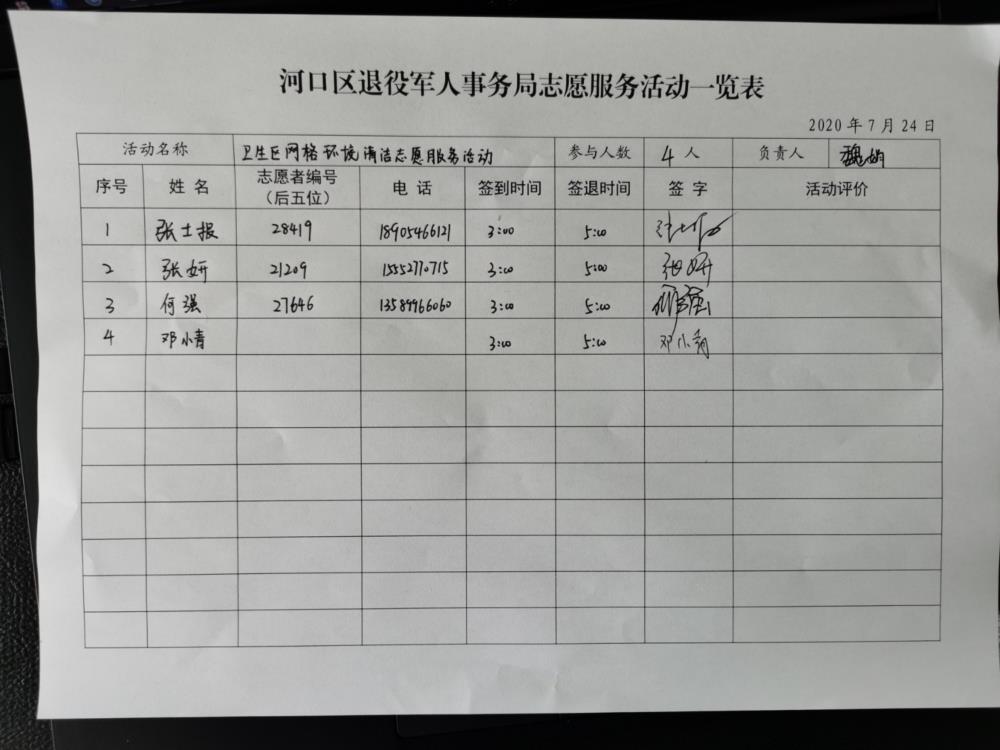 河口区退役军人事务局志愿服务活动一览表
2020 年 7 月 24 日
活动名称 卫生区网格环境清洁志愿服务活动 参与人数 4 人 负责人 魏娟
序号 姓名 志愿者编号（后五位） 电话 签到时间 签退时间 签字 活动评价
1 张士报 28419 18905466121 3:00 5:00
2 张妍 21209 15552770715 3:00 5:00 张妍
3 何强 27646 13589966060 3:00 5:00 何强
4 邓小青 3:00 5:00 邓小青